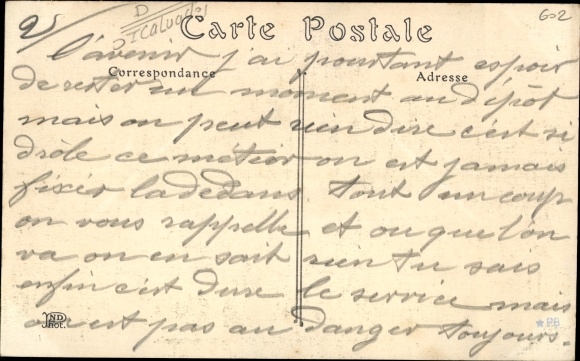 2)
D
DT Calvados
602
Carte Postale
Correspondance
Adresse
l'avenir j'ai pourtant espoir
de rester un moment au dépôt
mais on peut rien dire c'est si
drôle ce métier on est jamais
fixér ladedans tout un coup
on vous rappelle et ou que l'on
va on en sait rien tu sais
enfin c'est dure le service mais
on est pas au danger toujours.
ND
Phot.